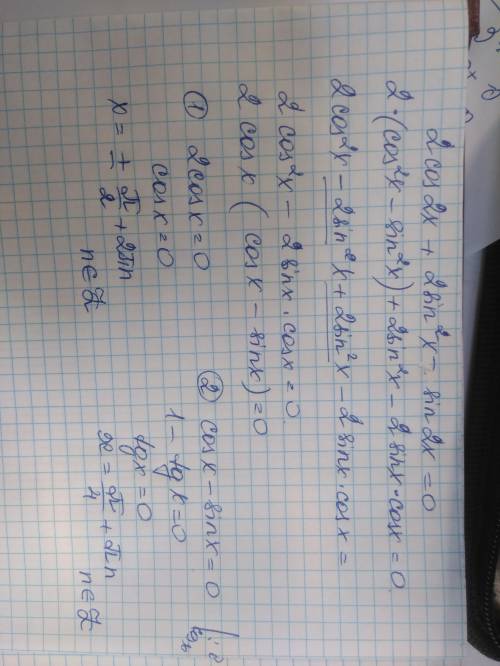 2cos2x + 2sin²x - sin2x = 0
2·(cos²x - sin²x) + 2sin²x - 2sinx·cosx = 0
2cos²x - 2sin²x + 2sin²x - 2sinx·cosx =
2cos²x - 2sinx·cosx = 0
2cosx (cosx - sinx) = 0
① 2cosx = 0
cosx = 0
x = ± π/2 + 2πn
n∈Z
② cosx - sinx = 0
1 - tgx = 0
tgx = 0
x = π/4 + πn
n∈Z